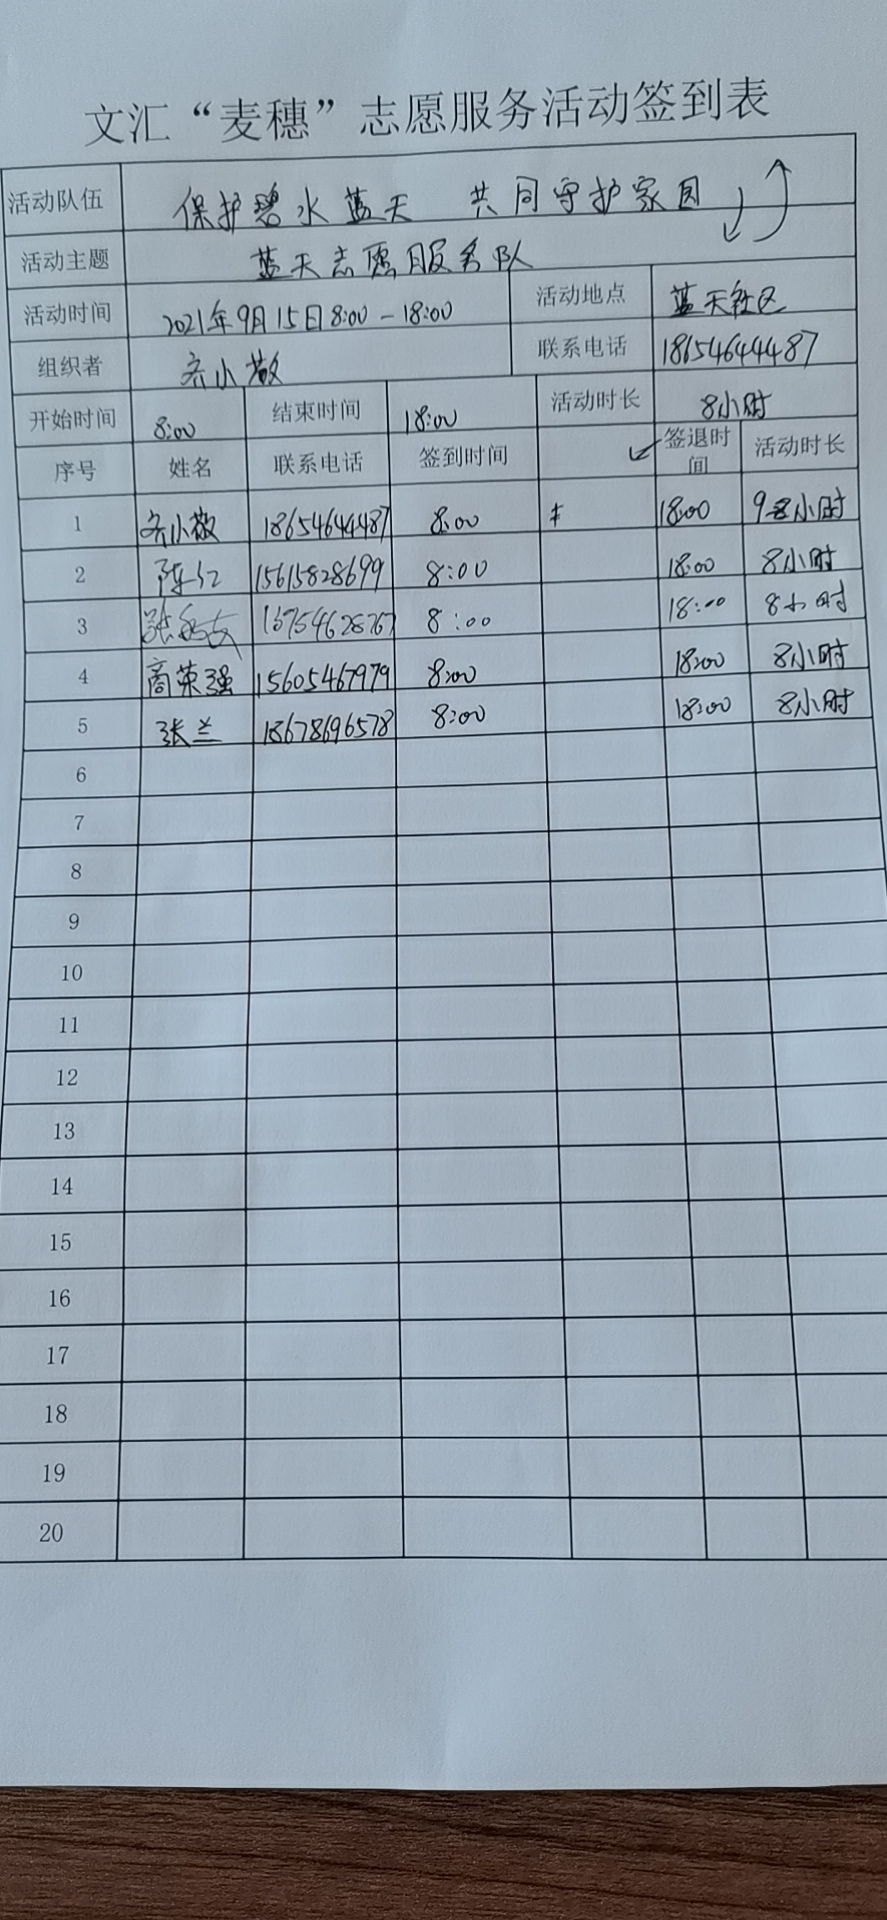 文汇“麦穗”志愿服务活动签到表
活动队伍 保护碧水蓝天 共同守护家园
活动主题 蓝天志愿服务队
活动时间 2021年9月15日8:00-18:00 活动地点 蓝天社区
组织者 齐小敬 联系电话 18654644487
开始时间 8:00 结束时间 18:00 活动时长 8小时
序号 姓名 联系电话 签到时间 签退时间 活动时长
1 齐小敬 18654644487 8:00 18:00 8小时
2 陈红 15615828699 8:00 18:00 8小时
3 张 8:00 18:00 8小时
4 商荣强 15605467979 8:00 18:00 8小时
5 张兰 18678696578 8:00 18:00 8小时
6
7
8
9
10
11
12
13
14
15
16
17
18
19
20